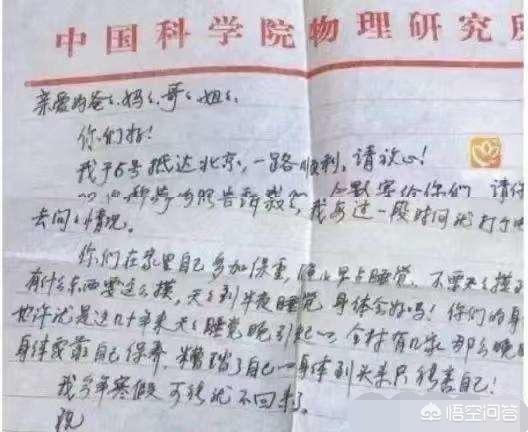 中国科学院物理研究所
亲爱的爸爸、妈妈、哥哥、姐姐:
你们好!
我于5号抵达北京,一路顺利,请放心!
告诉 写给你们 请你
去问问情况。 我每过一段时间就打
你们在家里自己多加保重,晚上早点睡觉,不要天天摸
有什么东西要这么摸,天天到半夜睡觉身体会好吗!你们的身
也许就是这几十年来天天睡觉晚引起的。全村有几家那么晚
身体要靠自己保养,糟蹋了自己的身体到头来只能害自己!
我今年寒假可能就不回来了。
祝
悟空问答